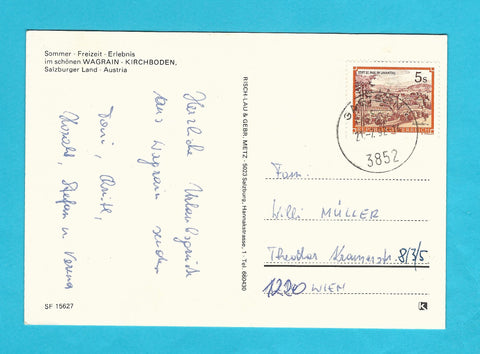 Sommer · Freizeit · Erlebnis
im schönen WAGRAIN - KIRCHBODEN,
Salzburger Land · Austria
Herzliche Urlaubsgrüße
aus Wagrain senden
Toni,
Harald, Stefan u. Verena
SF 15627
RISCH-LAU & GEBR. METZ · 5023 Salzburg, Hannakstrasse, 1 Tel. 660430
STIFT ST. PAUL IM LAVANTTAL
5s
REPUBLIK ÖSTERREICH
3852
Fam.
Willi MÜLLER
Theodor Kramerstr. 8/3/5
1220 WIEN
K